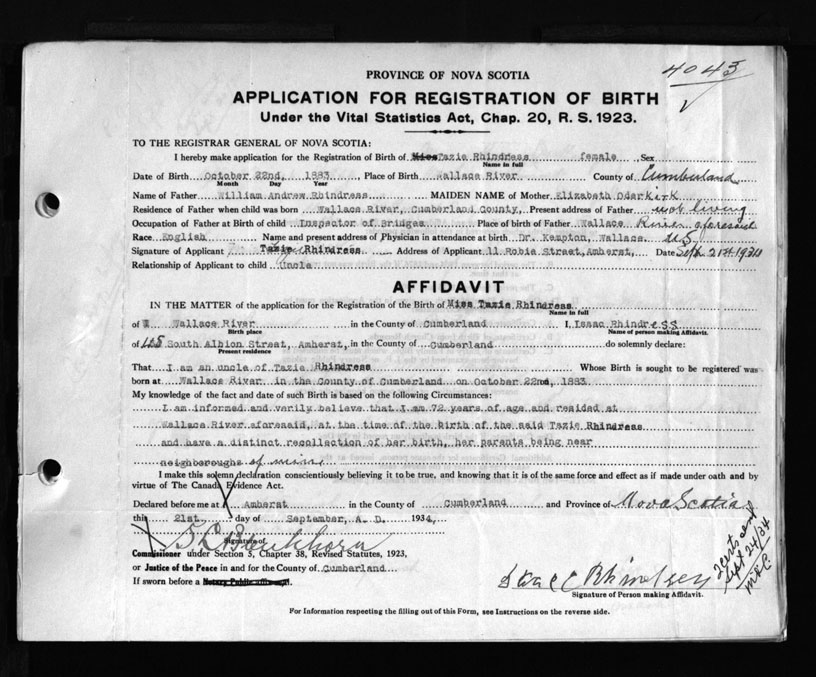 4043
PROVINCE OF NOVA SCOTIA
APPLICATION FOR REGISTRATION OF BIRTH
Under the Vital Statistics Act, Chap. 20, R. S. 1923.
TO THE REGISTRAR GENERAL OF NOVA SCOTIA:
I hereby make application for the Registration of Birth of Miss Tazie Rhindress female Sex
Name in full
Date of Birth October 22nd, 1883 Place of Birth Wallace River County of Cumberland
Month Day Year
Name of Father William Andrew Rhindress MAIDEN NAME of Mother Elizabeth Oderkirk
Residence of Father when child was born Wallace River, Cumberland County, Present address of Father not living
Occupation of Father at Birth of child Inspector of Bridges Place of birth of Father Wallace River aforesaid
Race English Name and present address of Physician in attendance at birth Dr. Kempton, Wallace, N.S.
Signature of Applicant Tazie Rhindress Address of Applicant 11 Robie Street, Amherst, Date Sept. 21st 1934
Relationship of Applicant to child Uncle
AFFIDAVIT
IN THE MATTER of the application for the Registration of the Birth of Miss Tazie Rhindress
Name in full
of Wallace River in the County of Cumberland I, Isaac Rhindress
Birth place Name of person making Affidavit.
of 125 South Albion Street, Amherst, in the County of Cumberland do solemnly declare:
Present residence
That I am an uncle of Tazie Rhindress Whose Birth is sought to be registered was
born at Wallace River in the County of Cumberland on October 22nd, 1883
My knowledge of the fact and date of such Birth is based on the following Circumstances:
I am informed and verily believe that I am 72 years of age and resided at
Wallace River aforesaid, at the time of the birth of the said Tazie Rhindress
and have a distinct recollection of her birth, her parents being near
neighboroughs of mine
I make this solemn declaration conscientiously believing it to be true, and knowing that it is of the same force and effect as if made under oath and by
virtue of The Canada Evidence Act.
Declared before me at Amherst in the County of Cumberland and Province of Nova Scotia
this 21st. day of September, A. D. 1934,
Signature of
Commissioner under Section 5, Chapter 38, Revised Statutes, 1923,
or Justice of the Peace in and for the County of Cumberland
If sworn before a Notary Public affix seal.
Isaac Rhindress
Signature of Person making Affidavit.
2 certs send
Sept 24/34
For Information respecting the filling out of this Form, see Instructions on the reverse side.